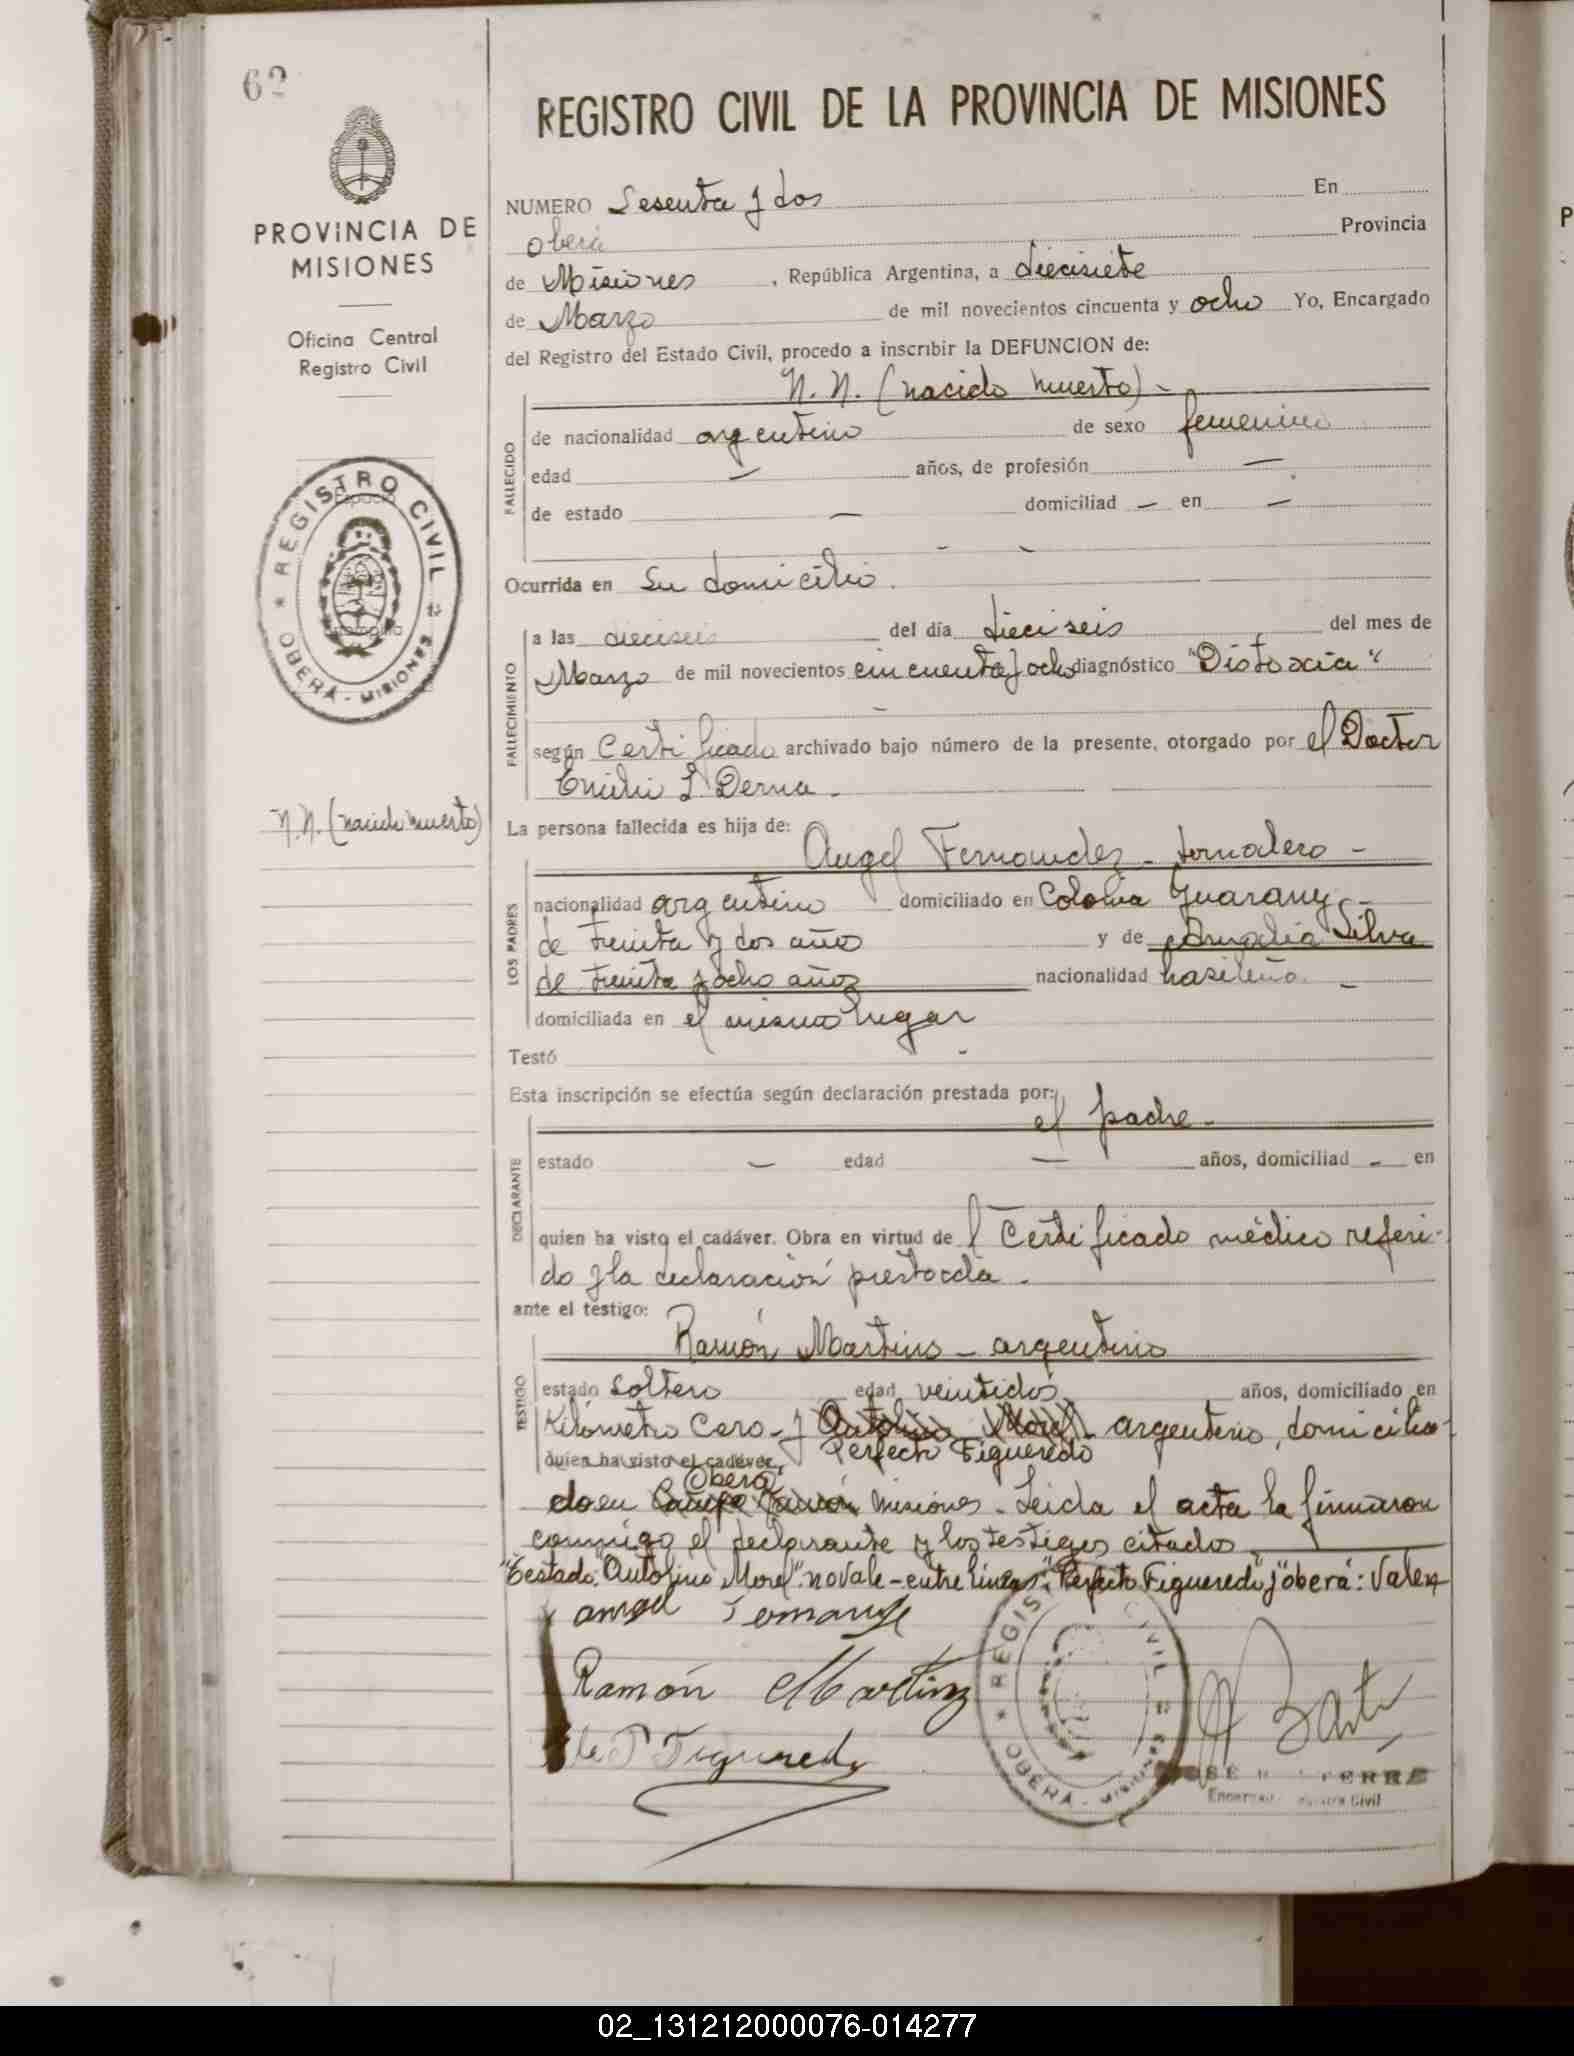 62
REGISTRO CIVIL DE LA PROVINCIA DE MISIONES
PROVINCIA DE
MISIONES
Oficina Central
Registro Civil
REGISTRO CIVIL
OBERÁ - MISIONES
N.N. (nacido muerto)
NUMERO Sesenta y dos En
Oberá Provincia
de Misiones, República Argentina, a diecisiete
de Marzo de mil novecientos cincuenta y ocho Yo, Encargado
del Registro del Estado Civil, procedo a inscribir la DEFUNCION de:
N.N. (nacido muerto) -
FALLECIDO
de nacionalidad argentino de sexo femenino
edad — años, de profesión —
de estado — domiciliad — en —
Ocurrida en su domicilio.
FALLECIMIENTO
a las dieciseis del día dieciseis del mes de
Marzo de mil novecientos cincuenta y ocho diagnóstico "Distoxia"
según Certificado archivado bajo número de la presente, otorgado por el Doctor
Emilio L. Derna -
La persona fallecida es hija de:
Angel Fernandez - jornalero -
LOS PADRES
nacionalidad argentino domiciliado en Colonia Guarany -
de treinta y dos año y de Angelia Silva
de treinta y ocho años nacionalidad brasileña. -
domiciliada en el mismo lugar
Testó -
Esta inscripción se efectúa según declaración prestada por:
el padre -
DECLARANTE
estado — edad — años, domiciliad - en
quien ha visto el cadáver. Obra en virtud del Certificado médico referi-
do y la declaración prestada -
ante el testigo:
Ramón Martins - argentino
TESTIGO
estado Soltero edad veintidos años, domiciliado en
Kilómetro Cero - y Antolino Morel - argentino, domicilia-
quien ha visto el cadáver, Perfecto Figueredo
Oberá
do en Campo Ramón Misiones - Leida el acta la firmaron
conmigo el declarante y los testigos citados
"Testado: "Antolino Morel": no vale - entre líneas: "Perfecto Figueredo" y "Oberá": Valen
Ramón Martinz
P Figueredo
REGISTRO CIVIL
OBERÁ - MISIONES
Registro Civil
02_131212000076-014277